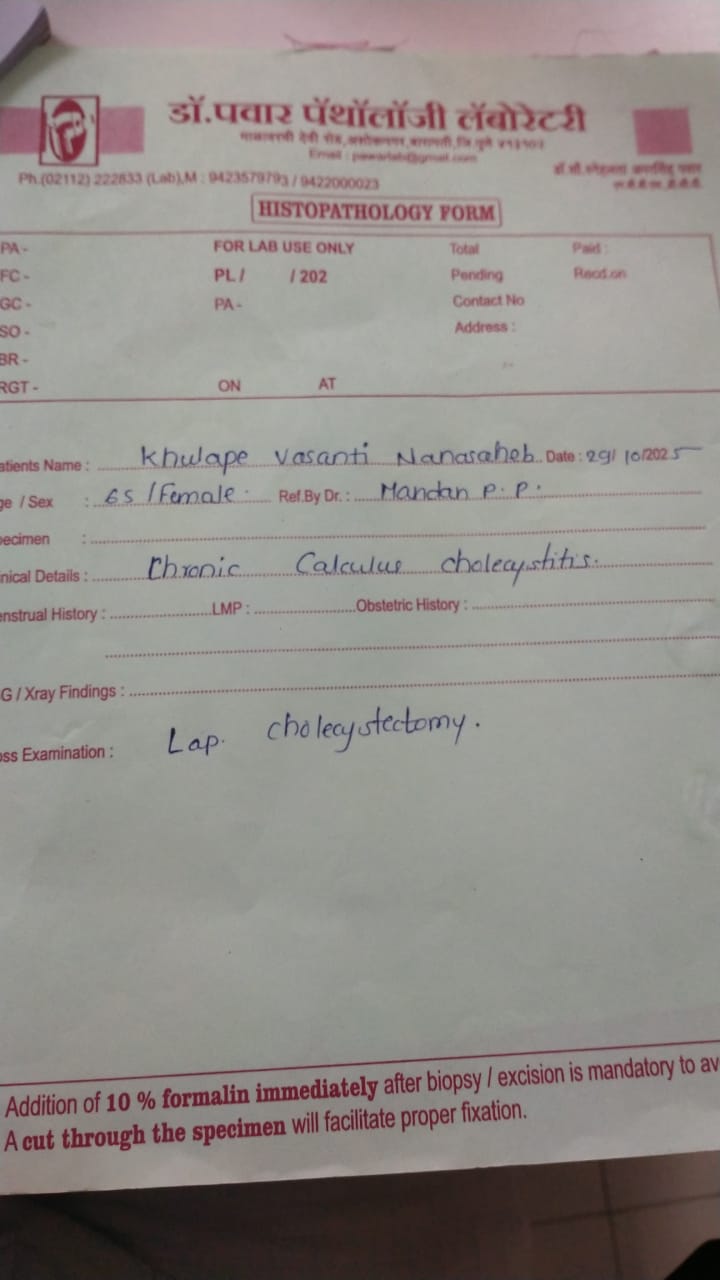 डॉ.पवार पॅथॉलॉजी लॅबोरेटरी
देवी रोड, अशोकनगर, बारामती, जि.पुणे
Email : pawarlab@gmail.com
Ph.(02112) 222833 (Lab),M : 9423579793 / 9422000023
HISTOPATHOLOGY FORM
PA - FOR LAB USE ONLY Total Paid :
FC - PL / / 202 Pending Recd.on
GC - PA - Contact No
SO - Address :
BR -
RGT - ON AT
atients Name : Khulape Vasanti Nanasaheb Date : 29/10/2025
ge / Sex : 65 / Female Ref.By Dr. : Mandan P. P.
ecimen :
nical Details : Chronic Calculus cholecystitis.
enstrual History : LMP : Obstetric History :
G / Xray Findings :
oss Examination : Lap. cholecystectomy.
Addition of 10 % formalin immediately after biopsy / excision is mandatory to av
A cut through the specimen will facilitate proper fixation.